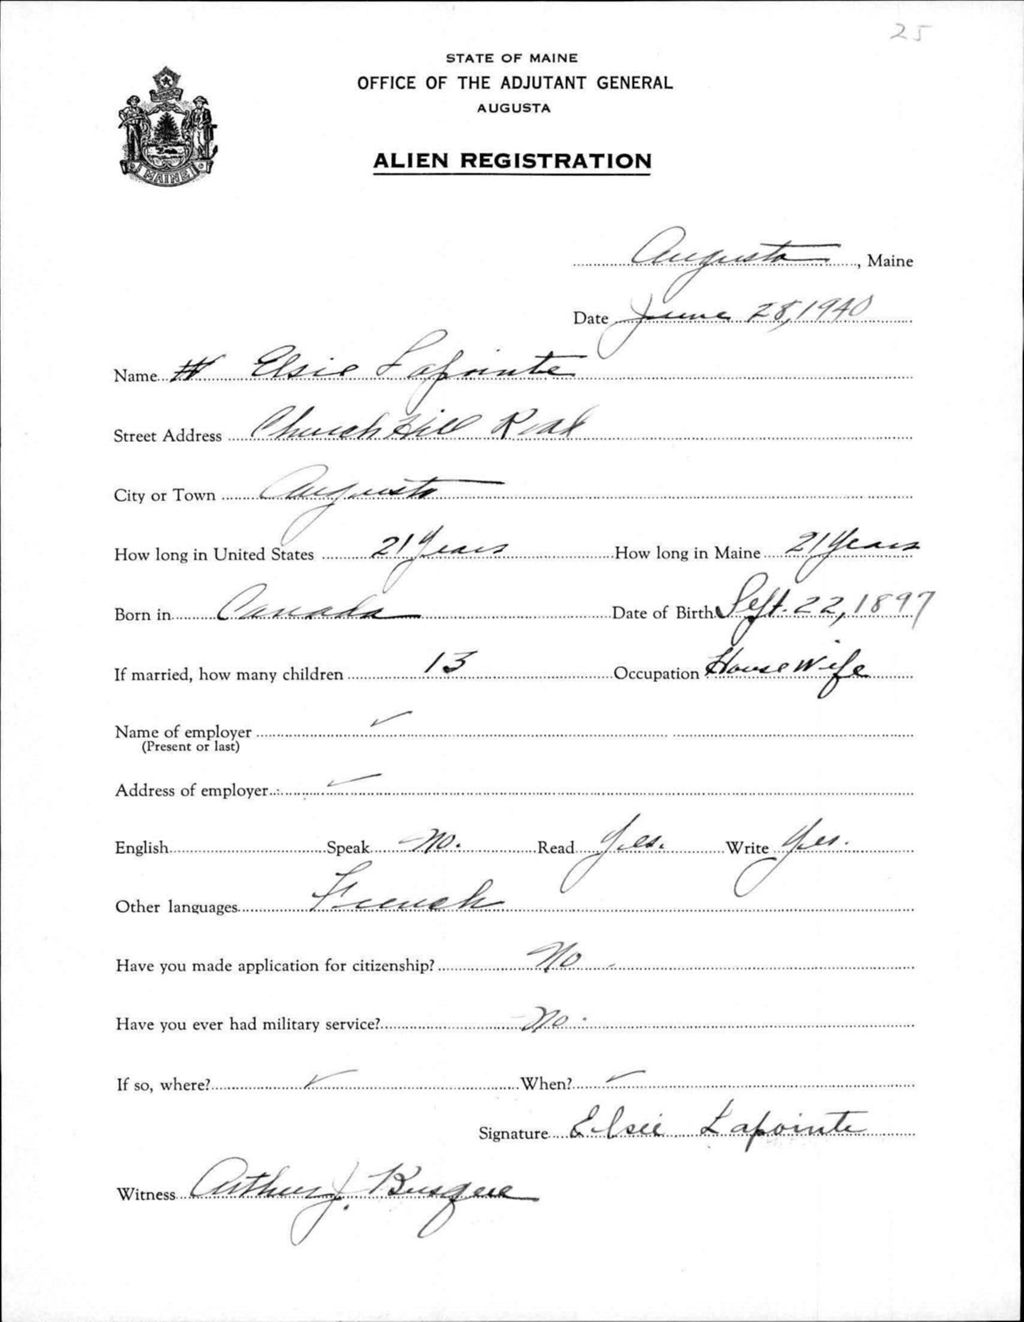 25
STATE OF MAINE
OFFICE OF THE ADJUTANT GENERAL
AUGUSTA
MAINE
ALIEN REGISTRATION
Augusta, Maine
Date June 28, 1940
Name # Elsie Lapointe
Street Address Church Hill Road
City or Town Augusta
How long in United States 21 Years How long in Maine 21 Years
Born in Canada Date of Birth Sept. 22, 1897
If married, how many children 13 Occupation House Wife
Name of employer ✓
(Present or last)
Address of employer ✓
English Speak No. Read Yes. Write Yes.
Other languages French
Have you made application for citizenship? No
Have you ever had military service? No.
If so, where? ✓ When? ✓
Signature Elsie Lapointe
Witness Arthur J.